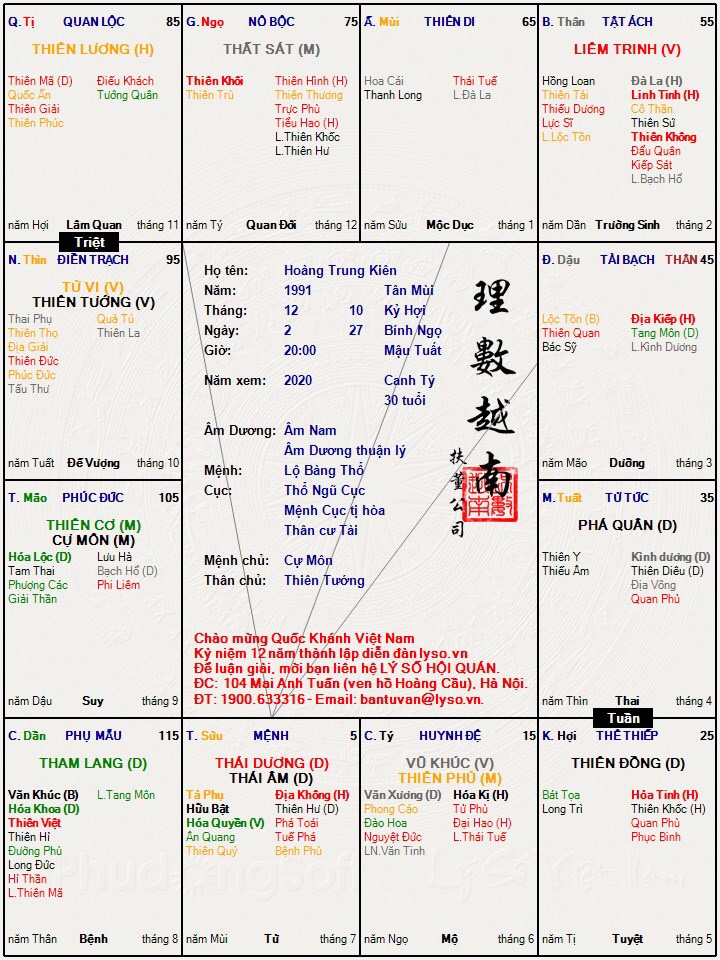 Q. Tị QUAN LỘC 85
THIÊN LƯƠNG (H)
Thiên Mã (D) Điếu Khách
Quốc Ấn Tướng Quân
Thiên Giải
Thiên Phúc
năm Hợi Lâm Quan tháng 11
G. Ngọ NÔ BỘC 75
THẤT SÁT (M)
Thiên Khôi Thiên Hình (H)
Thiên Trù Thiên Thương
Trực Phù
Tiểu Hao (H)
L.Thiên Khốc
L.Thiên Hư
năm Tý Quan Đới tháng 12
Ấ. Mùi THIÊN DI 65
Hoa Cái Thái Tuế
Thanh Long L.Đà La
năm Sửu Mộc Dục tháng 1
B. Thân TẬT ÁCH 55
LIÊM TRINH (V)
Hồng Loan Đà La (H)
Thiên Tài Linh Tinh (H)
Thiếu Dương Cô Thần
Lực Sĩ Thiên Sứ
L.Lộc Tồn Thiên Không
Đẩu Quân
Kiếp Sát
L.Bạch Hổ
năm Dần Trường Sinh tháng 2
Triệt
N. Thìn ĐIỀN TRẠCH 95
TỬ VI (V)
THIÊN TƯỚNG (V)
Thai Phụ Quả Tú
Thiên Thọ Thiên La
Địa Giải
Thiên Đức
Phúc Đức
Tấu Thư
năm Tuất Đế Vượng tháng 10
Họ tên: Hoàng Trung Kiên
Năm: 1991 Tân Mùi
Tháng: 12 10 Kỷ Hợi
Ngày: 2 27 Bính Ngọ
Giờ: 20:00 Mậu Tuất
Năm xem: 2020 Canh Tý
30 tuổi
Âm Dương: Âm Nam
Âm Dương thuận lý
Mệnh: Lộ Bàng Thổ
Cục: Thổ Ngũ Cục
Mệnh Cục tị hòa
Thân cư Tài
Mệnh chủ: Cự Môn
Thân chủ: Thiên Tướng
理數越南
扶董公司
Chào mừng Quốc Khánh Việt Nam
Kỷ niệm 12 năm thành lập diễn đàn lyso.vn
Để luận giải, mời bạn liên hệ LÝ SỐ HỘI QUÁN.
ĐC: 104 Mai Anh Tuấn (ven hồ Hoàng Cầu), Hà Nội.
ĐT: 1900.633316 - Email: bantuvan@lyso.vn.
Đ. Dậu TÀI BẠCH THÂN 45
Lộc Tồn (B) Địa Kiếp (H)
Thiên Quan Tang Môn (D)
Bác Sỹ L.Kình Dương
năm Mão Dưỡng tháng 3
T. Mão PHÚC ĐỨC 105
THIÊN CƠ (M)
CỰ MÔN (M)
Hóa Lộc (D) Lưu Hà
Tam Thai Bạch Hổ (D)
Phượng Các Phi Liêm
Giải Thần
năm Dậu Suy tháng 9
M. Tuất TỬ TỨC 35
PHÁ QUÂN (D)
Thiên Y Kình dương (D)
Thiếu Âm Thiên Diêu (D)
Địa Võng
Quan Phủ
năm Thìn Thai tháng 4
Tuần
C. Dần PHỤ MẪU 115
THAM LANG (D)
Văn Khúc (B) L.Tang Môn
Hóa Khoa (D)
Thiên Việt
Thiên Hỉ
Đường Phù
Long Đức
Hỉ Thần
L.Thiên Mã
năm Thân Bệnh tháng 8
T. Sửu MỆNH 5
THÁI DƯƠNG (D)
THÁI ÂM (D)
Tả Phụ Địa Không (H)
Hữu Bật Thiên Hư (D)
Hóa Quyền (V) Phá Toái
Ân Quang Tuế Phá
Thiên Quý Bệnh Phù
năm Mùi Tử tháng 7
C. Tý HUYNH ĐỆ 15
VŨ KHÚC (V)
THIÊN PHỦ (M)
Văn Xương (D) Hóa Kị (H)
Phong Cáo Tử Phù
Đào Hoa Đại Hao (H)
Nguyệt Đức L.Thái Tuế
LN.Văn Tinh
năm Ngọ Mộ tháng 6
K. Hợi THÊ THIẾP 25
THIÊN ĐỒNG (D)
Bát Tọa Hỏa Tinh (H)
Long Trì Thiên Khốc (H)
Quan Phù
Phục Binh
năm Tị Tuyệt tháng 5